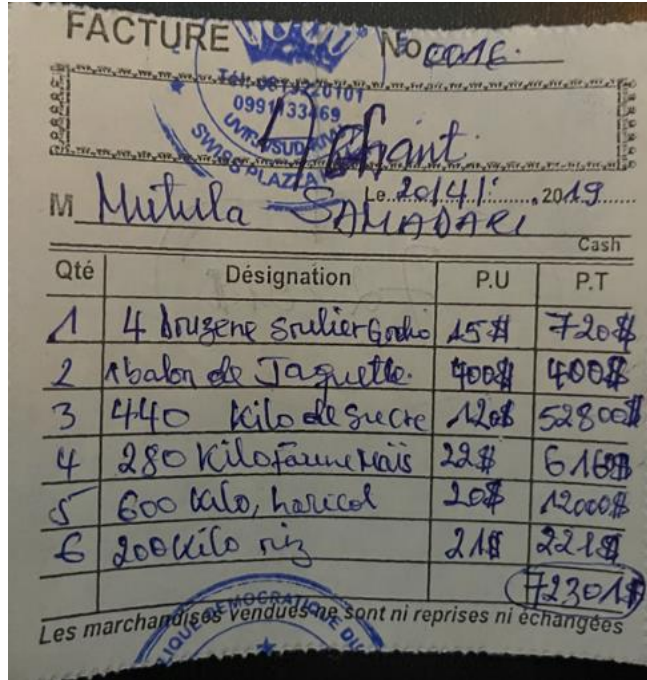 FACTURE No 0016.
Tél: 0819220101
0991133469
UVIRA/SUD-KIVU
SWISS PLAZZA
Achant.
Le 20/4/ 2019
M Mutula SAMADARI
Cash
Qté Désignation P.U P.T
1 4 douzene soulier Godio 15$ 720$
2 1 balon de Jaquette. 400$ 400$
3 440 Kilo de sucre 120$ 52800$
4 280 Kilo farine Maïs 22$ 6160$
5 600 kilo, haricot 20$ 12000$
6 200 kilo riz 21$ 221$
72301$
Les marchandises vendues ne sont ni reprises ni échangées